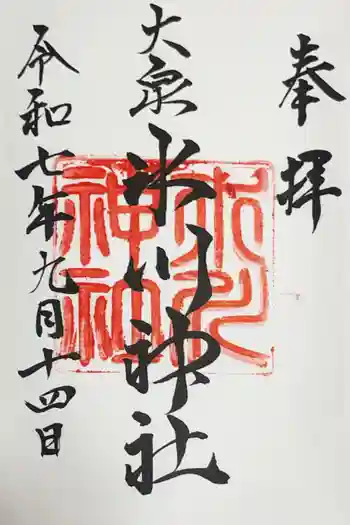 奉拝
大泉氷川神社
令和七年九月十四日
氷川
神社